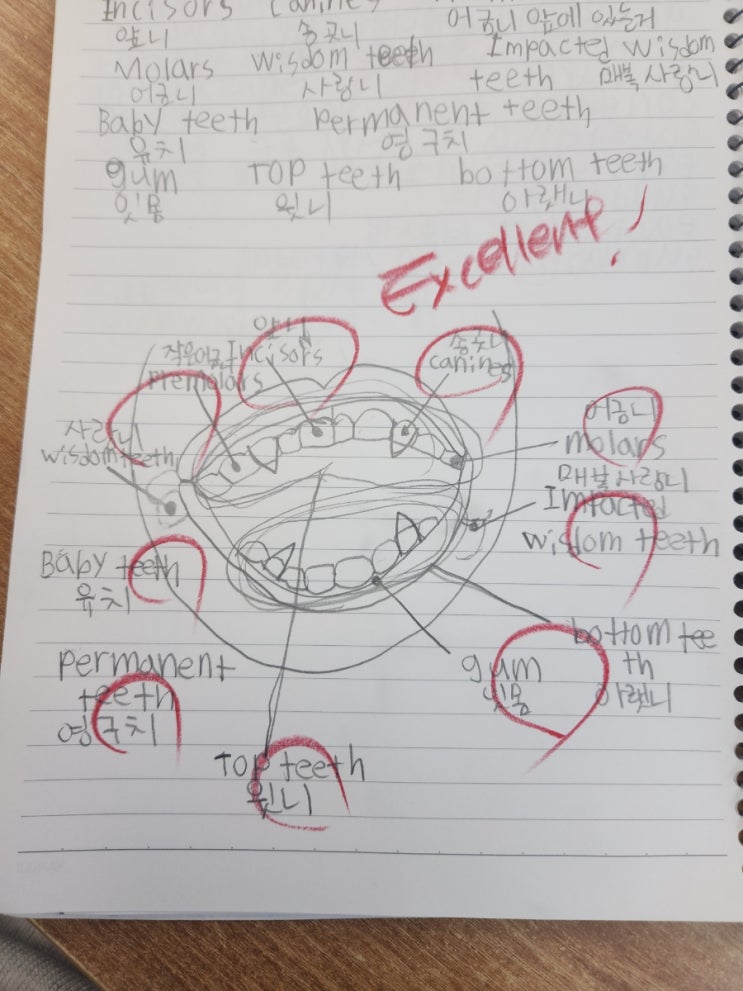 Incisors canines
어금니 앞에 있는거
앞니 송곳니
Molars wisdom teeth Impacted wisdom
어금니 사랑니 teeth 매복 사랑니
Baby teeth permanent teeth
유치 영구치
gum TOP teeth bottom teeth
잇몸 윗니 아랫니
Excellent!
앞니
Incisors
송곳니
canines
작은어금니
premolars
어금니
molars
사랑니
wisdom teeth
매복 사랑니
Impacted
wisdom teeth
Baby teeth
유치
bottom tee
th
아랫니
gum
잇몸
permanent
teeth
영구치
TOP teeth
윗니